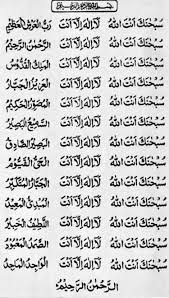 بسم الله الرحمن الرحيم
سُبْحٰنَكَ اَنْتَ اللهُ لَآ اِلٰهَ اِلَّا اَنْتَ رَبُّ الْعَرْشِ الْعَظِيْمِ
سُبْحٰنَكَ اَنْتَ اللهُ لَآ اِلٰهَ اِلَّا اَنْتَ الرَّحْمٰنُ الرَّحِيْمُ
سُبْحٰنَكَ اَنْتَ اللهُ لَآ اِلٰهَ اِلَّا اَنْتَ الْعَزِيْزُ الْجَبَّارُ
سُبْحٰنَكَ اَنْتَ اللهُ لَآ اِلٰهَ اِلَّا اَنْتَ الْحَكِيْمُ
سُبْحٰنَكَ اَنْتَ اللهُ لَآ اِلٰهَ اِلَّا اَنْتَ السَّمِيْعُ الْبَصِيْرُ
سُبْحٰنَكَ اَنْتَ اللهُ لَآ اِلٰهَ اِلَّا اَنْتَ الْبَصِيْرُ الصَّادِقُ
سُبْحٰنَكَ اَنْتَ اللهُ لَآ اِلٰهَ اِلَّا اَنْتَ الْحَيُّ الْقَيُّوْمُ
سُبْحٰنَكَ اَنْتَ اللهُ لَآ اِلٰهَ اِلَّا اَنْتَ الْجَبَّارُ الْمُتَكَبِّرُ
سُبْحٰنَكَ اَنْتَ اللهُ لَآ اِلٰهَ اِلَّا اَنْتَ اللَّطِيْفُ الْخَبِيْرُ
سُبْحٰنَكَ اَنْتَ اللهُ لَآ اِلٰهَ اِلَّا اَنْتَ الصَّمَدُ الْمَعْبُوْدُ
سُبْحٰنَكَ اَنْتَ اللهُ لَآ اِلٰهَ اِلَّا اَنْتَ الْوَاحِدُ الْمَاجِدُ
الرَّحْمٰنُ الرَّحِيْمُ